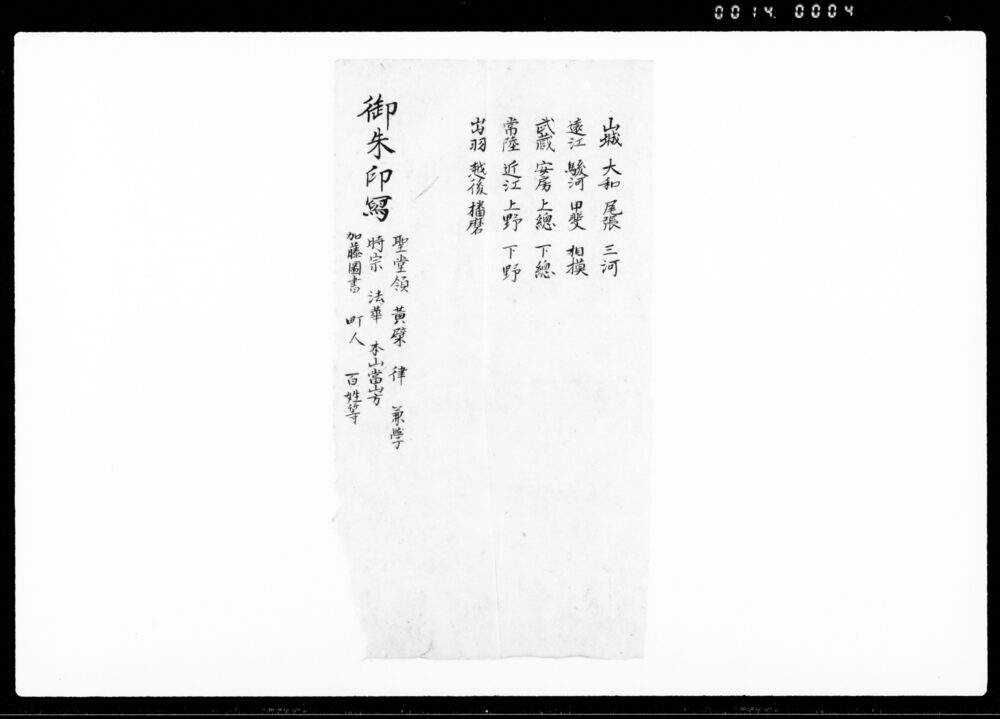 0014 0004
山城 大和 尾張 三河
遠江 駿河 甲斐 相摸
武蔵 安房 上總 下總
常陸 近江 上野 下野
出羽 越後 播磨
御朱印寫
聖堂領 黃檗 律 兼學
時宗 法華 本山當山方
加藤圖書 町人 百姓等